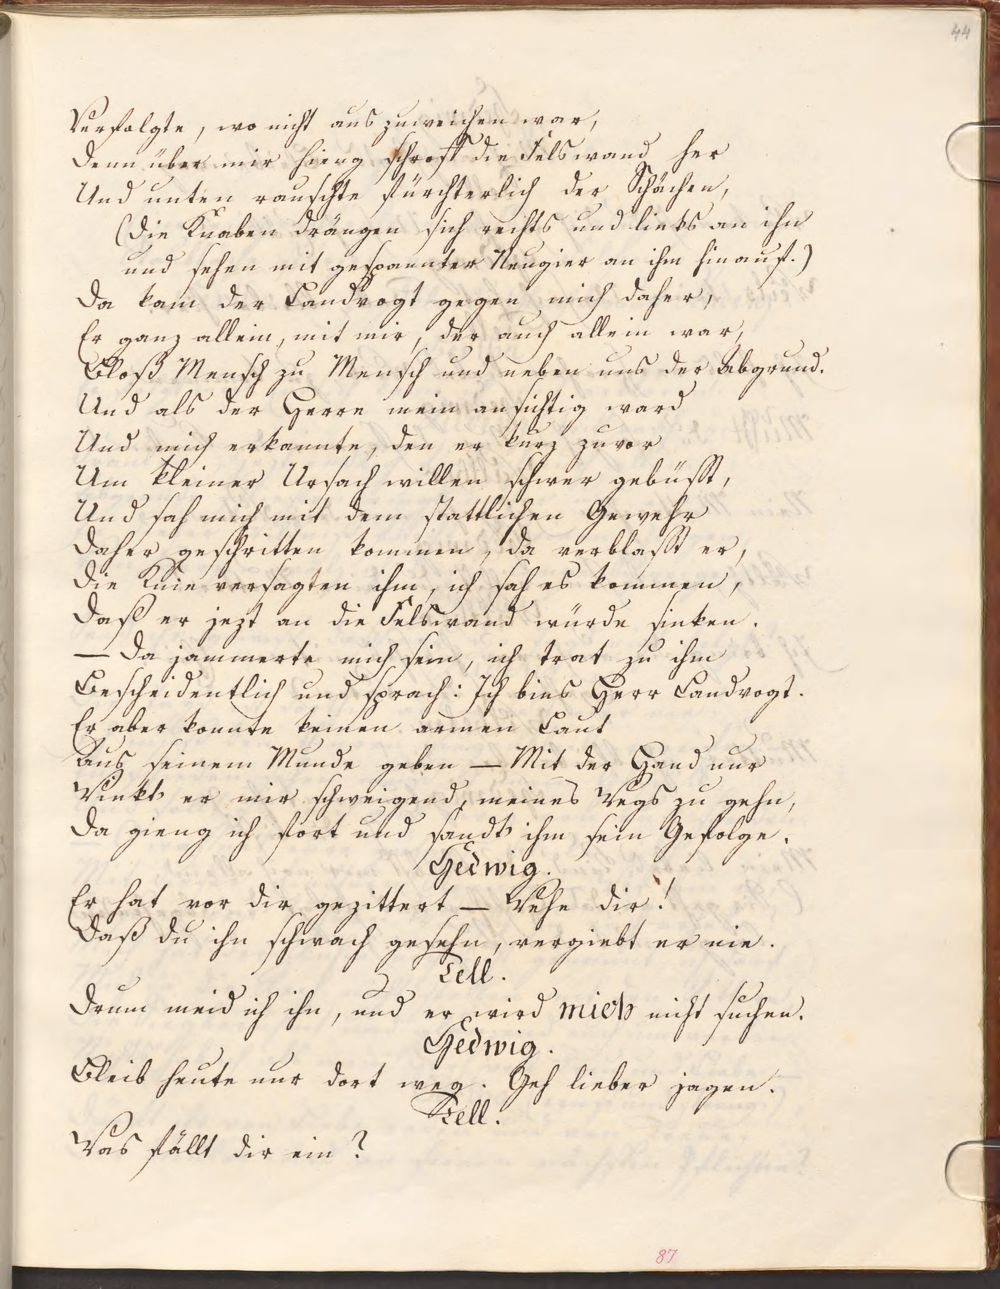 44
Verfolgte, wo nicht auszuweichen war,
Denn über mir hieng schroff die Felswand her
Und unten rauschte fürchterlich der Schächen,
(Die Knaben drängen sich rechts und links an ihn
und sehen mit gespannter Neugier an ihm hinauf.)
Da kam der Landvogt gegen mich daher,
Er ganz allein, mit mir, der auch allein war,
Bloß Mensch zu Mensch und neben uns der Abgrund.
Und als der Herre mein ansichtig ward
Und mich erkannte, den er kurz zuvor
Um kleiner Ursach willen schwer gebüßt,
Und sah mich mit dem stattlichen Gewehr
Daher geschritten kommen, da verblaßt er,
Die Knie versagten ihm, ich sah es kommen,
Daß er jezt an die Felswand würde sinken.
— Da jammerte mich sein, ich trat zu ihm
Bescheidentlich und sprach: Ich bins Herr Landvogt.
Er aber konnte keinen armen Laut
Aus seinem Munde geben — Mit der Hand nur
Winkt' er mir schweigend, meines Wegs zu gehn,
Da gieng ich fort und sandt' ihm sein Gefolge.
Hedwig.
Er hat vor dir gezittert — Wehe dir!
Daß du ihn schwach gesehn, vergiebt er nie.
Tell.
Drum meid ich ihn, und er wird mich nicht suchen.
Hedwig.
Bleib heute nur dort weg. Geh lieber jagen.
Tell.
Was fällt dir ein?
87